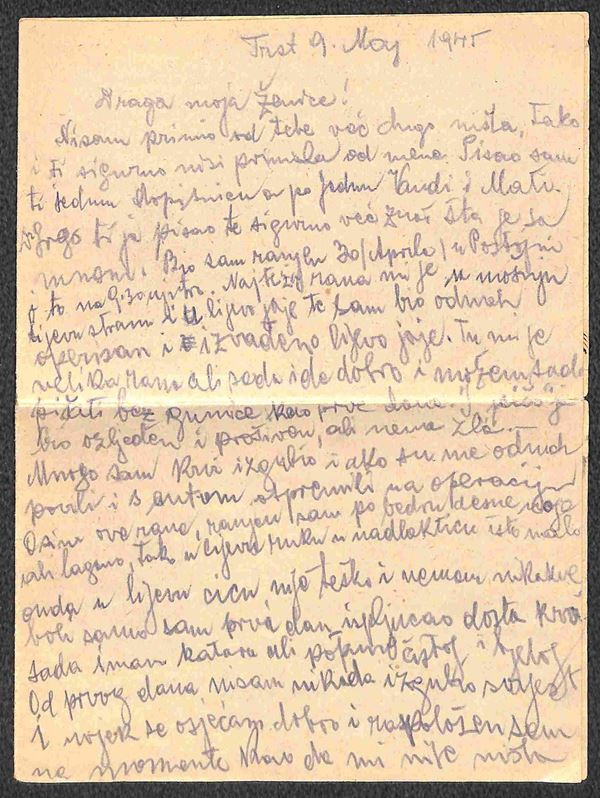 Trst 9. Maj 1945
Draga moja Ženice!
Nisam primio od tebe već dugo ništa, Tako
i ti sigurno nisi primila od mene. Pisao sam
ti jednu dopisnicu a po jednu Vandi i
ti je pisao te sigurno već znaš šta je sa
mnom. Bio sam ranjen 30/Aprila/ u Postojni
to na 9.30 ujutro. Najteža rana mi je u
lijevu stranu i u lijevo jaje te sam bio odmah
operisan i izvađeno lijevo jaje. Tu mi je
velika rana ali sada ide dobro i možem sada
pišiti bez gumice kao prve dane.
bio ozljeđen i, ali nema zla.
Mnogo sam krvi izgubio i ako su me odmah
povezli i s autom otpremili na operaciju
Osim ove rane, ranjen sam po bedru desne noge
ali lagano, tako u lijevu ruku u nadlakticu isto malo
onda u lijevu cicu nije teško i nemam nikakve
boli samo sam prvi dan ispljucao dosta krvi
sada imam kataru ali potpuno čistog i bijelog
Od prvog dana nisam nikada izgubio svijest
i uvjek se osjećam dobro i raspoložen sam
na momente kao da mi nije ništa